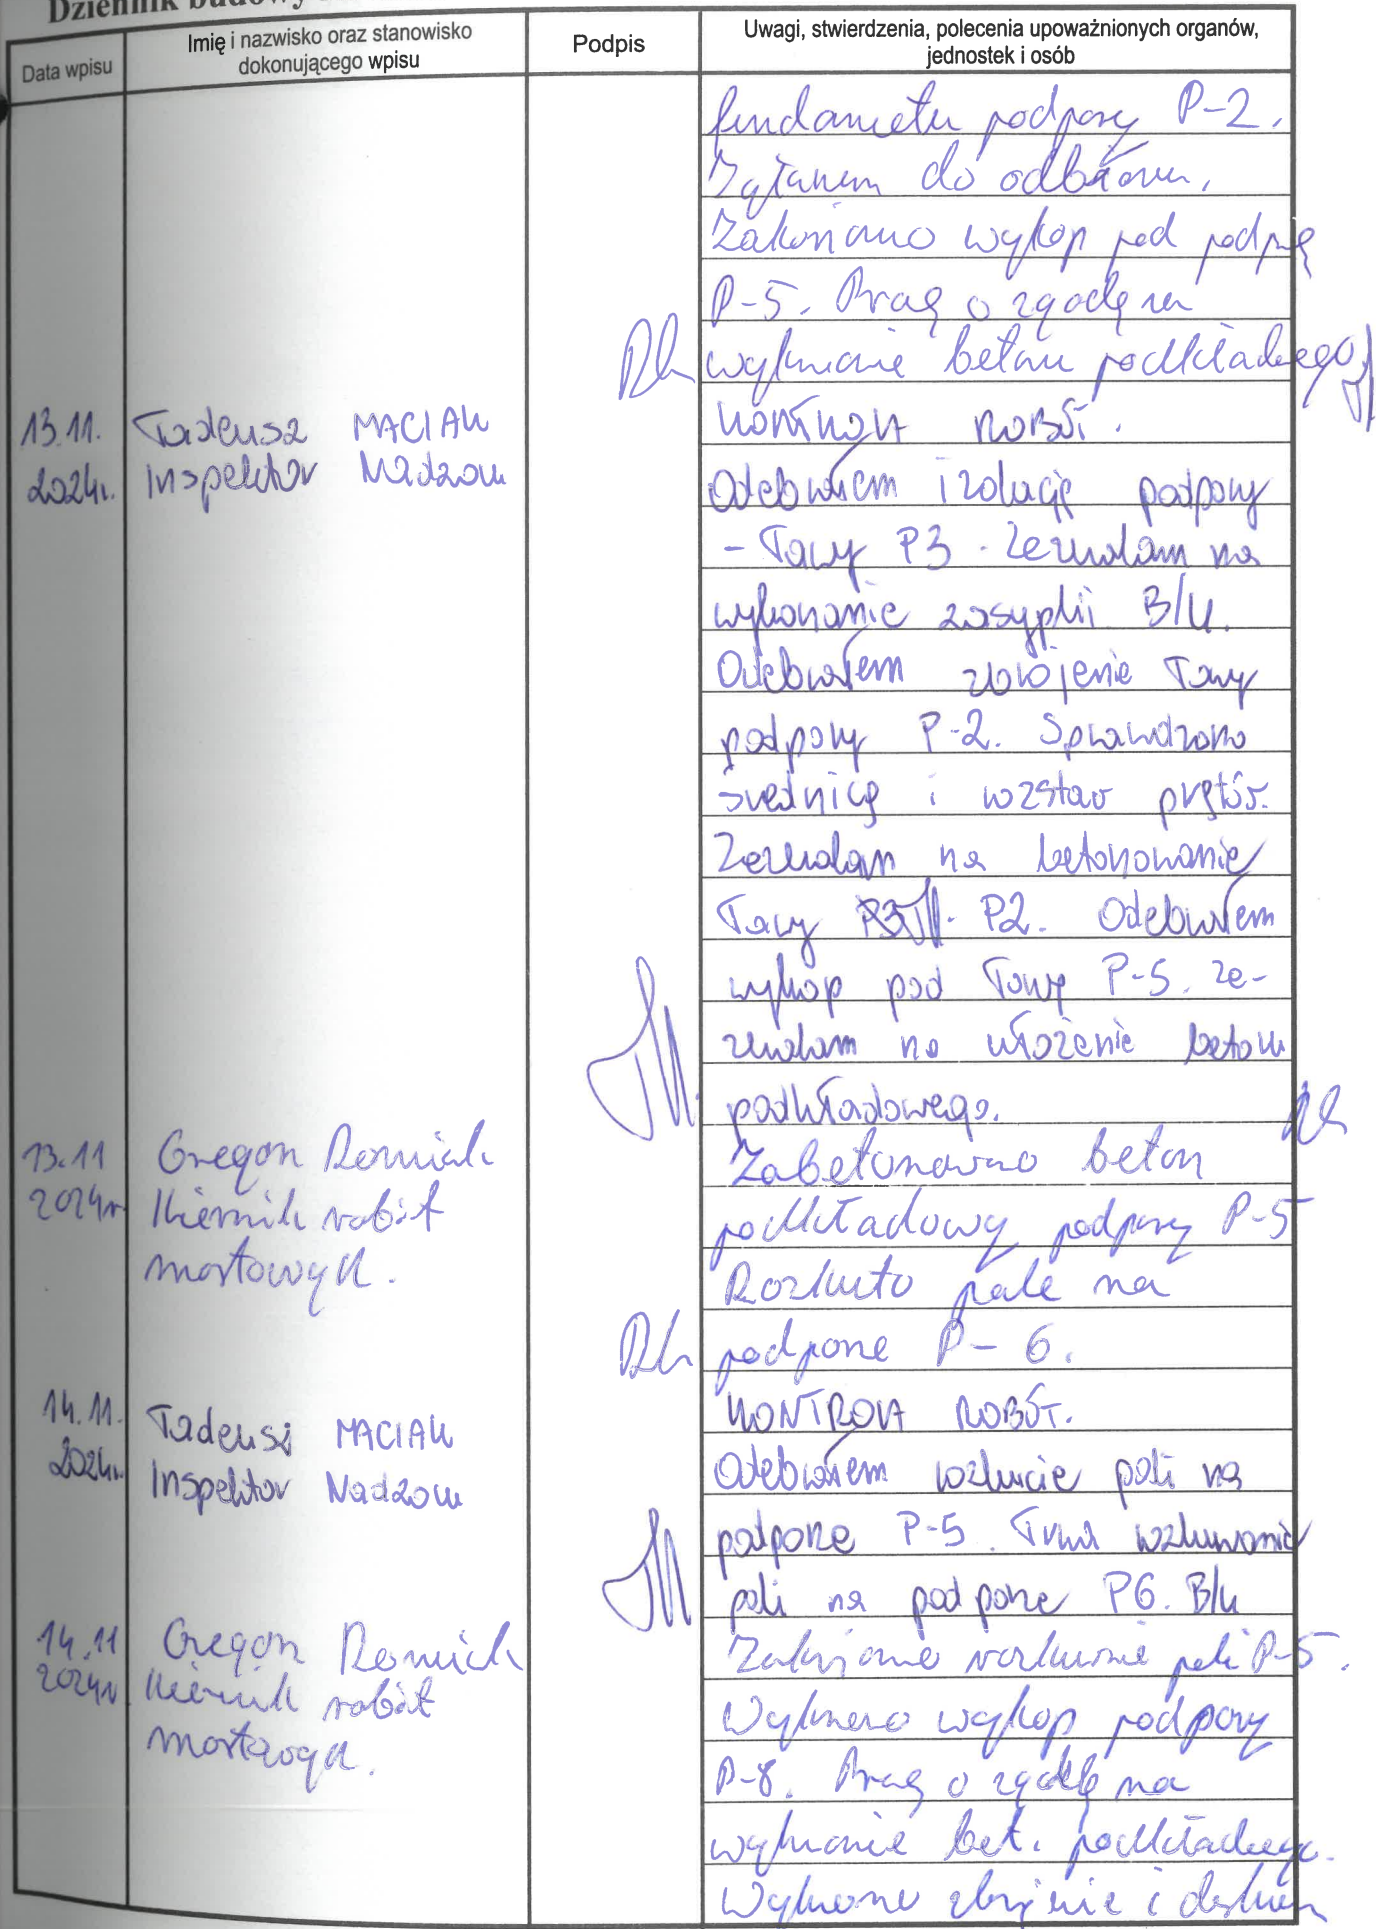 Dziennik budowy
Data wpisu
Imię i nazwisko oraz stanowisko
dokonującego wpisu
Podpis
Uwagi, stwierdzenia, polecenia upoważnionych organów,
jednostek i osób
fundametu podpory P-2.
do odbioru.
Zakończono wykop pod podporę
P-5. Proszę o zgodę na
wykonanie betonu podkładowego
13.11.
2024r.
Tadeusz MACIAK
Inspektor Nadzoru
KONTROLA ROBÓT.
Odebrałem izolację podpory
- Ławy P3. Zezwalam na
wykonanie zasypki B/U.
Odebrałem zbrojenie Ławy
podpory P-2. Sprawdzono
średnicę i rozstaw prętów.
Zezwalam na betonowanie
Ławy P2. Odebrałem
wykop pod Ławę P-5. Ze-
zwalam na ułożenie betonu
podkładowego.
13.11
2024r
Grzegorz
Kierownik robót
mostowych.
Zabetonowano beton
podkładowy podpory P-5
Rozkuto pale na
podporze P-6.
14.11.
2024r.
Tadeusz MACIAK
Inspektor Nadzoru
KONTROLA ROBÓT.
Odebrałem rozkucie pali na
podporze P-5. Trwa rozkuwanie
pali na podporze P6. B/U
14.11
2024r
Grzegorz
Kierownik robót
mostowych.
Zakończono rozkuwanie pali P-5.
Wykonano wykop podpory
P-8. Proszę o zgodę na
wykonanie bet. podkładowego.
Wykonano zbrojenie i